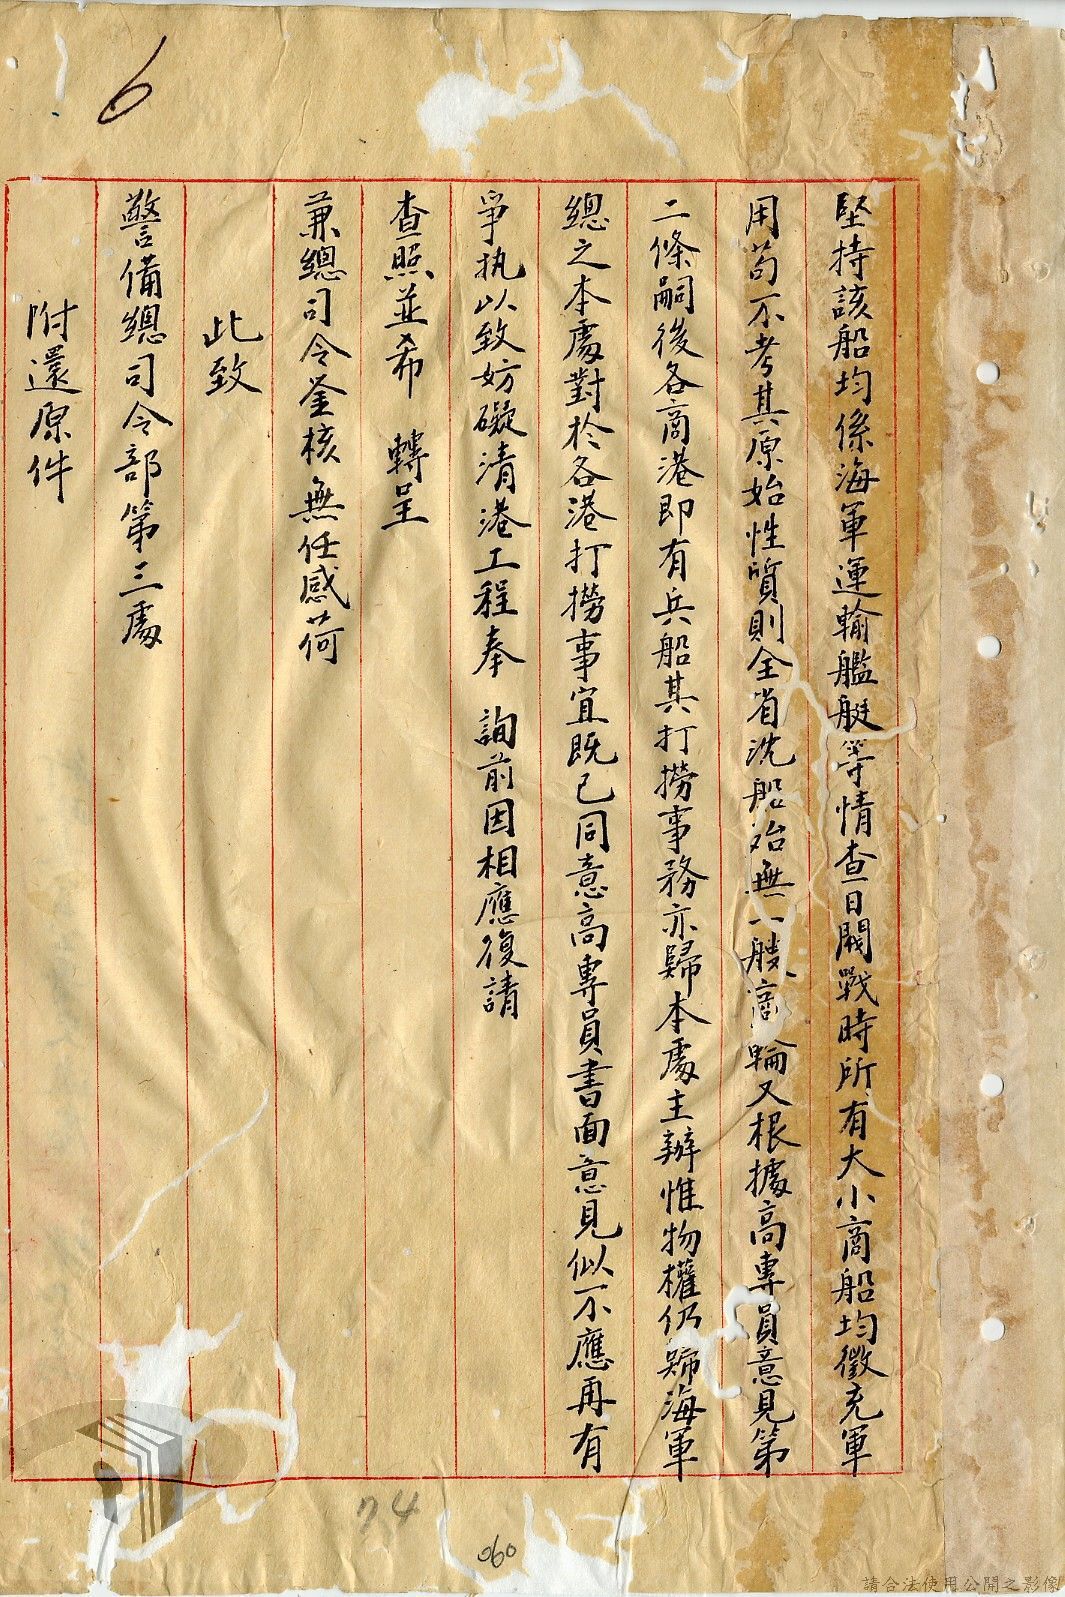 6
堅持該船均係海軍運輸艦艇等情查日閥戰時所有大小商船均徵充軍
用苟不考其原始性質則全省沈船殆無一艘商輪又根據高專員意見第
二條嗣後各商港即有兵船其打撈事務亦歸本處主辦惟物權仍歸海軍
總之本處對於各港打撈事宜既已同意高專員書面意見似不應再有
爭执以致妨礙清港工程奉 詢前因相應復請
查照並希 轉呈
兼總司令鉴核無任感荷
此致
警備總司令部第三處
附還原件
74
060
請合法使用公開之影像